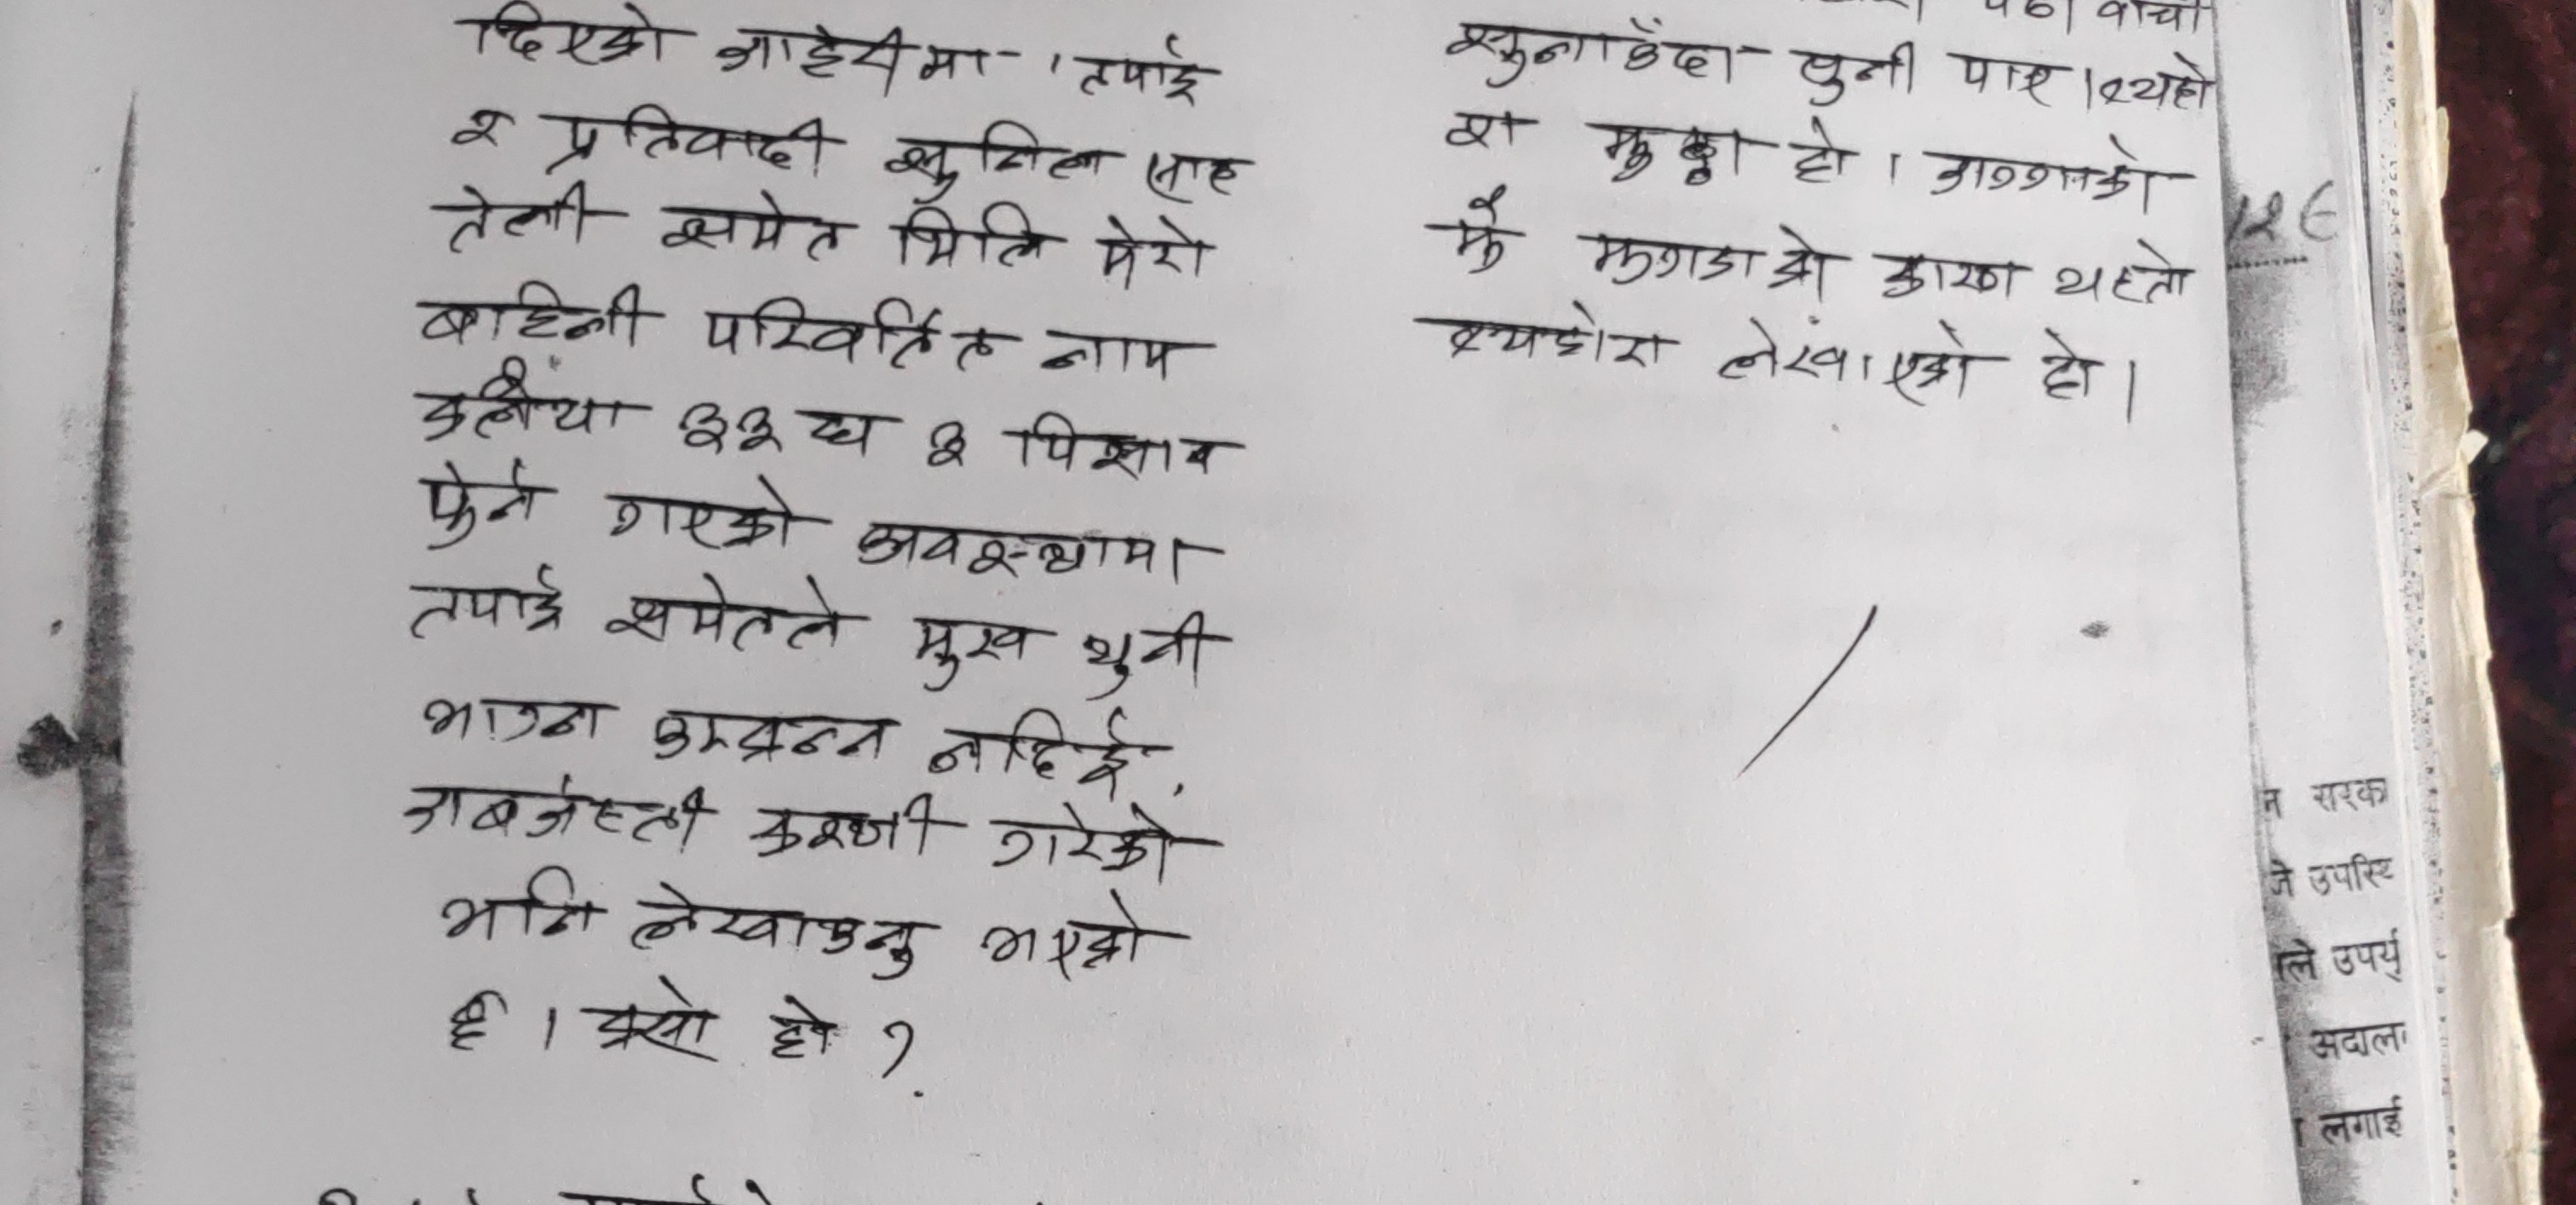 दिएको जाहेरीमा तपाई
र प्रतिवादी सुनिल साह
तेली समेत मिलि मेरो
बाहिनी परिवर्तित नाम
कलैया ३३ घ ३ पिसाब
फेर्न गएको अवस्थामा
तपाई समेतले मुख थुनी
भाग्न उम्कन न दिई,
जबर्जस्ती करणी गरेको
भनि लेखाउनु भएको
छ । के सो हो ?
वाची
सुनाउँदा सुनी पाए ।
रा मुद्दा हो ।
झगडाको कारण यस्तो
व्यहोरा लेखाएको हो ।
१२६
न सरका
जे उपस्थि
ले उपर्यु
अदाल
लगाई